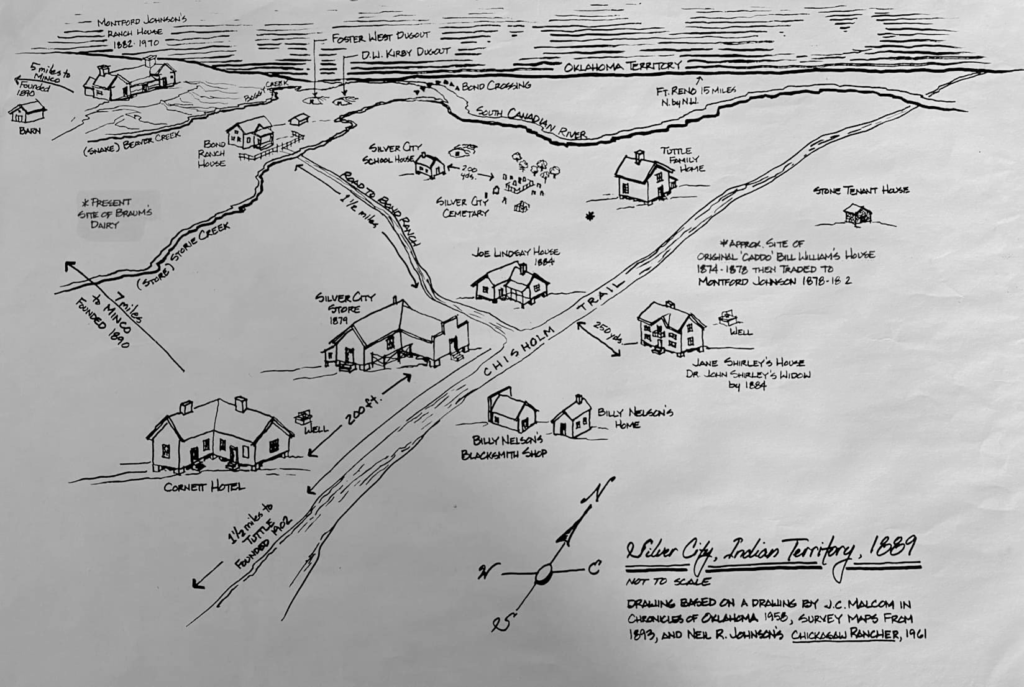 MONTFORD JOHNSON'S
RANCH HOUSE
1882-1970
5 MILES TO
MINCO
FOUNDED
1890
BARN
(SNAKE) BEAVER CREEK
BUGGY CREEK
FOSTER WEST DUGOUT
D.W. KIRBY DUGOUT
BOND CROSSING
OKLAHOMA TERRITORY
FT. RENO 15 MILES
N. by N.W.
SOUTH CANADIAN RIVER
BOND
RANCH
HOUSE
SILVER CITY
SCHOOL HOUSE
200
yds.
SILVER CITY
CEMETARY
TUTTLE
FAMILY
HOME
STONE TENANT HOUSE
* PRESENT
SITE OF BRAUM'S
DAIRY
(STORE) STORIE CREEK
ROAD TO BOND RANCH
1½ miles
* APPROX. SITE OF
ORIGINAL 'CADDO' BILL WILLIAM'S HOUSE
1874-1878 THEN TRADED TO
MONTFORD JOHNSON 1878-18 2
7 miles
to MINCO
FOUNDED 1890
JOE LINDSAY HOUSE
1884
SILVER CITY
STORE
1879
CHISHOLM TRAIL
250 yds.
WELL
JANE SHIRLEY'S HOUSE
DR. JOHN SHIRLEY'S WIDOW
by 1884
200 ft.
WELL
CORNETT HOTEL
BILLY NELSON'S
HOME
BILLY NELSON'S
BLACKSMITH SHOP
1½ miles to
TUTTLE
FOUNDED 1902
N
W
E
S
Silver City, Indian Territory, 1889
NOT TO SCALE
DRAWING BASED ON A DRAWING BY J.C. MALCOM IN
CHRONICLES OF OKLAHOMA 1958, SURVEY MAPS FROM
1893, AND NEIL R. JOHNSON'S CHICKASAW RANCHER, 1961